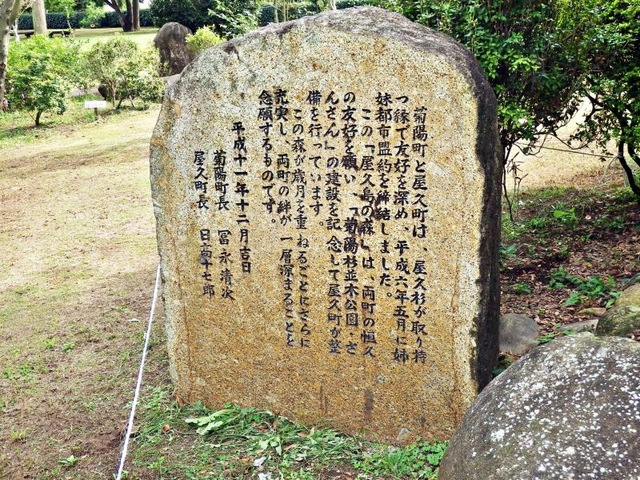 菊陽町と屋久町は、屋久杉が取り持
つ縁で友好を深め、平成六年五月に姉
妹都市盟約を締結しました。
この「屋久島の森」は、両町の恒久
の友好を願い、「菊陽杉並木公園 さ
んさん」の建設を記念して屋久町が整
備を行っています。
この森が歳月を重ねるごとにさらに
充実し、両町の絆が一層深まることと
念願するものです。
平成十一年十二月吉日
菊陽町長 冨永清次
屋久町長 日高十七郎